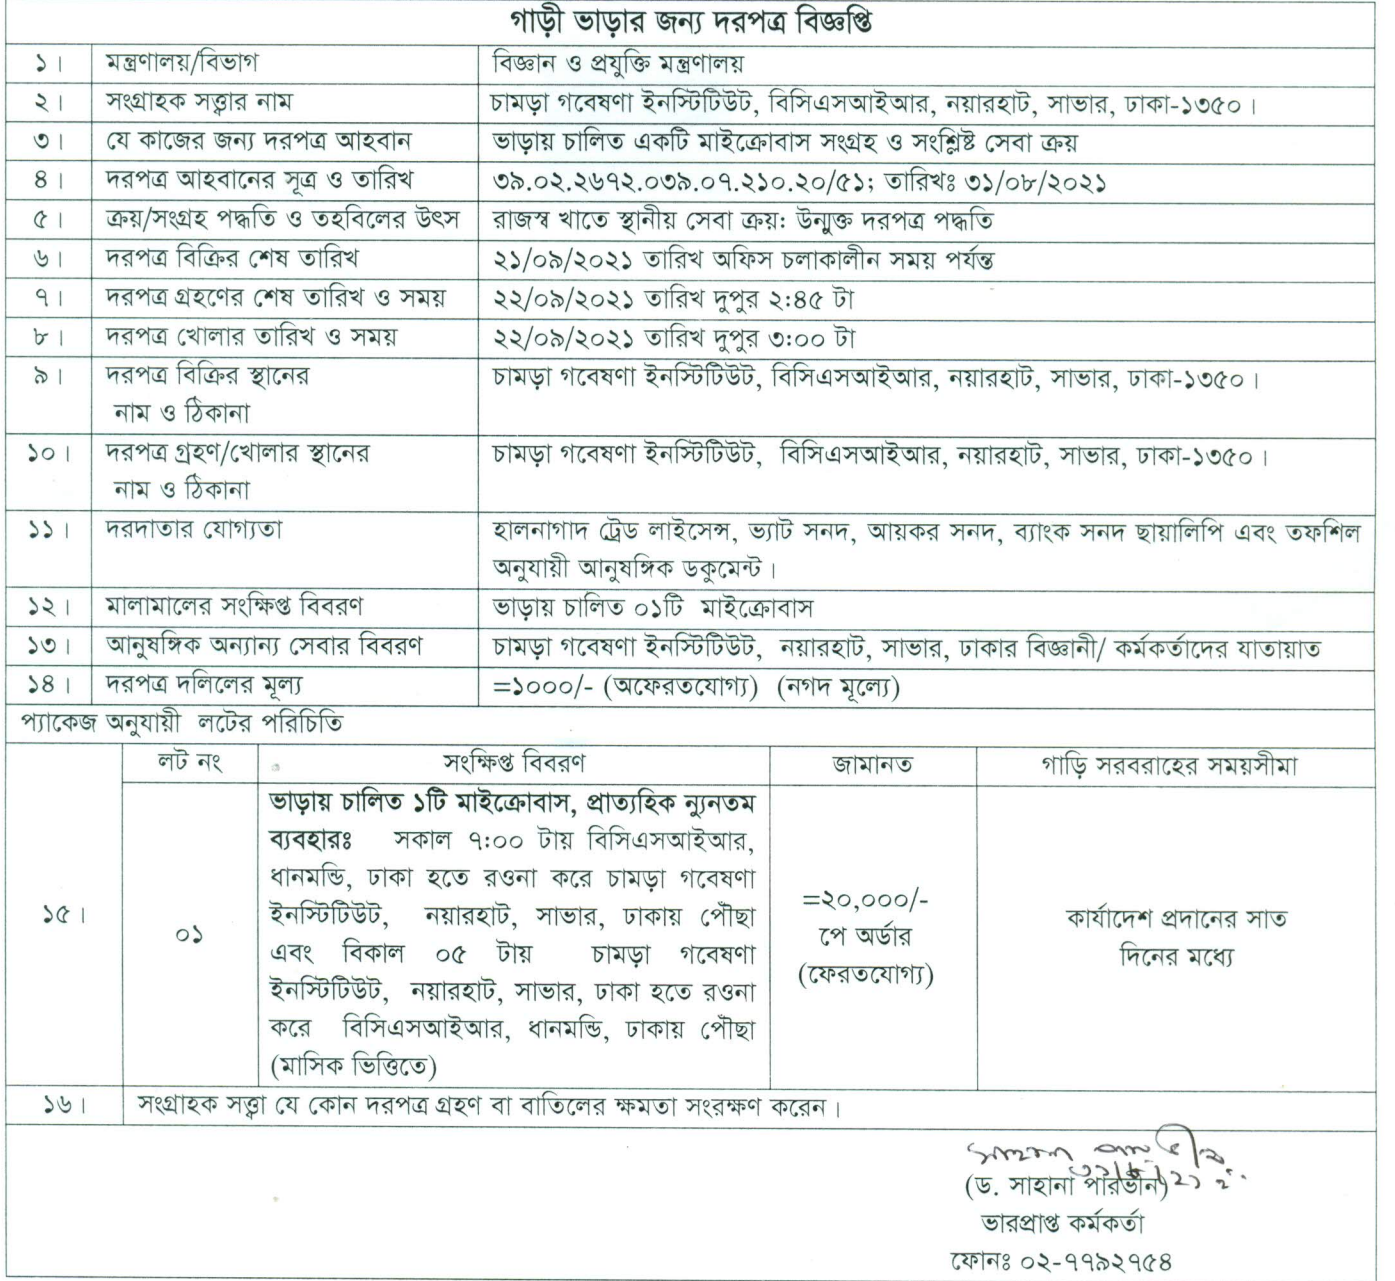 গাড়ী ভাড়ার জন্য দরপত্র বিজ্ঞপ্তি
১। মন্ত্রণালয়/বিভাগ বিজ্ঞান ও প্রযুক্তি মন্ত্রণালয়
২। সংগ্রাহক সত্ত্বার নাম চামড়া গবেষণা ইনস্টিটিউট, বিসিএসআইআর, নয়ারহাট, সাভার, ঢাকা-১৩৫০।
৩। যে কাজের জন্য দরপত্র আহবান ভাড়ায় চালিত একটি মাইক্রোবাস সংগ্রহ ও সংশ্লিষ্ট সেবা ক্রয়
৪। দরপত্র আহবানের সূত্র ও তারিখ ৩৯.০২.২৬৭২.০৩৯.০৭.২১০.২০/৫১; তারিখঃ ৩১/০৮/২০২১
৫। ক্রয়/সংগ্রহ পদ্ধতি ও তহবিলের উৎস রাজস্ব খাতে স্থানীয় সেবা ক্রয়: উন্মুক্ত দরপত্র পদ্ধতি
৬। দরপত্র বিক্রির শেষ তারিখ ২১/০৯/২০২১ তারিখ অফিস চলাকালীন সময় পর্যন্ত
৭। দরপত্র গ্রহণের শেষ তারিখ ও সময় ২২/০৯/২০২১ তারিখ দুপুর ২:৪৫ টা
৮। দরপত্র খোলার তারিখ ও সময় ২২/০৯/২০২১ তারিখ দুপুর ৩:০০ টা
৯। দরপত্র বিক্রির স্থানের চামড়া গবেষণা ইনস্টিটিউট, বিসিএসআইআর, নয়ারহাট, সাভার, ঢাকা-১৩৫০।
নাম ও ঠিকানা
১০। দরপত্র গ্রহণ/খোলার স্থানের চামড়া গবেষণা ইনস্টিটিউট, বিসিএসআইআর, নয়ারহাট, সাভার, ঢাকা-১৩৫০।
নাম ও ঠিকানা
১১। দরদাতার যোগ্যতা হালনাগাদ ট্রেড লাইসেন্স, ভ্যাট সনদ, আয়কর সনদ, ব্যাংক সনদ ছায়ালিপি এবং তফশিল
অনুযায়ী আনুষঙ্গিক ডকুমেন্ট।
১২। মালামালের সংক্ষিপ্ত বিবরণ ভাড়ায় চালিত ০১টি মাইক্রোবাস
১৩। আনুষঙ্গিক অন্যান্য সেবার বিবরণ চামড়া গবেষণা ইনস্টিটিউট, নয়ারহাট, সাভার, ঢাকার বিজ্ঞানী/ কর্মকর্তাদের যাতায়াত
১৪। দরপত্র দলিলের মূল্য =১০০০/- (অফেরতযোগ্য) (নগদ মূল্যে)
প্যাকেজ অনুযায়ী লটের পরিচিতি
লট নং সংক্ষিপ্ত বিবরণ জামানত গাড়ি সরবরাহের সময়সীমা
ভাড়ায় চালিত ১টি মাইক্রোবাস, প্রাত্যহিক ন্যুনতম
ব্যবহারঃ সকাল ৭:০০ টায় বিসিএসআইআর,
ধানমন্ডি, ঢাকা হতে রওনা করে চামড়া গবেষণা
১৫। ০১ ইনস্টিটিউট, নয়ারহাট, সাভার, ঢাকায় পৌঁছা
এবং বিকাল ০৫ টায় চামড়া গবেষণা
ইনস্টিটিউট, নয়ারহাট, সাভার, ঢাকা হতে রওনা
করে বিসিএসআইআর, ধানমন্ডি, ঢাকায় পৌঁছা
(মাসিক ভিত্তিতে)
=২০,০০০/-
পে অর্ডার
(ফেরতযোগ্য)
কার্যাদেশ প্রদানের সাত
দিনের মধ্যে
১৬। সংগ্রাহক সত্ত্বা যে কোন দরপত্র গ্রহণ বা বাতিলের ক্ষমতা সংরক্ষণ করেন।
(ড. সাহানা পারভীন)
ভারপ্রাপ্ত কর্মকর্তা
ফোনঃ ০২-৭৭৯২৭৫৪